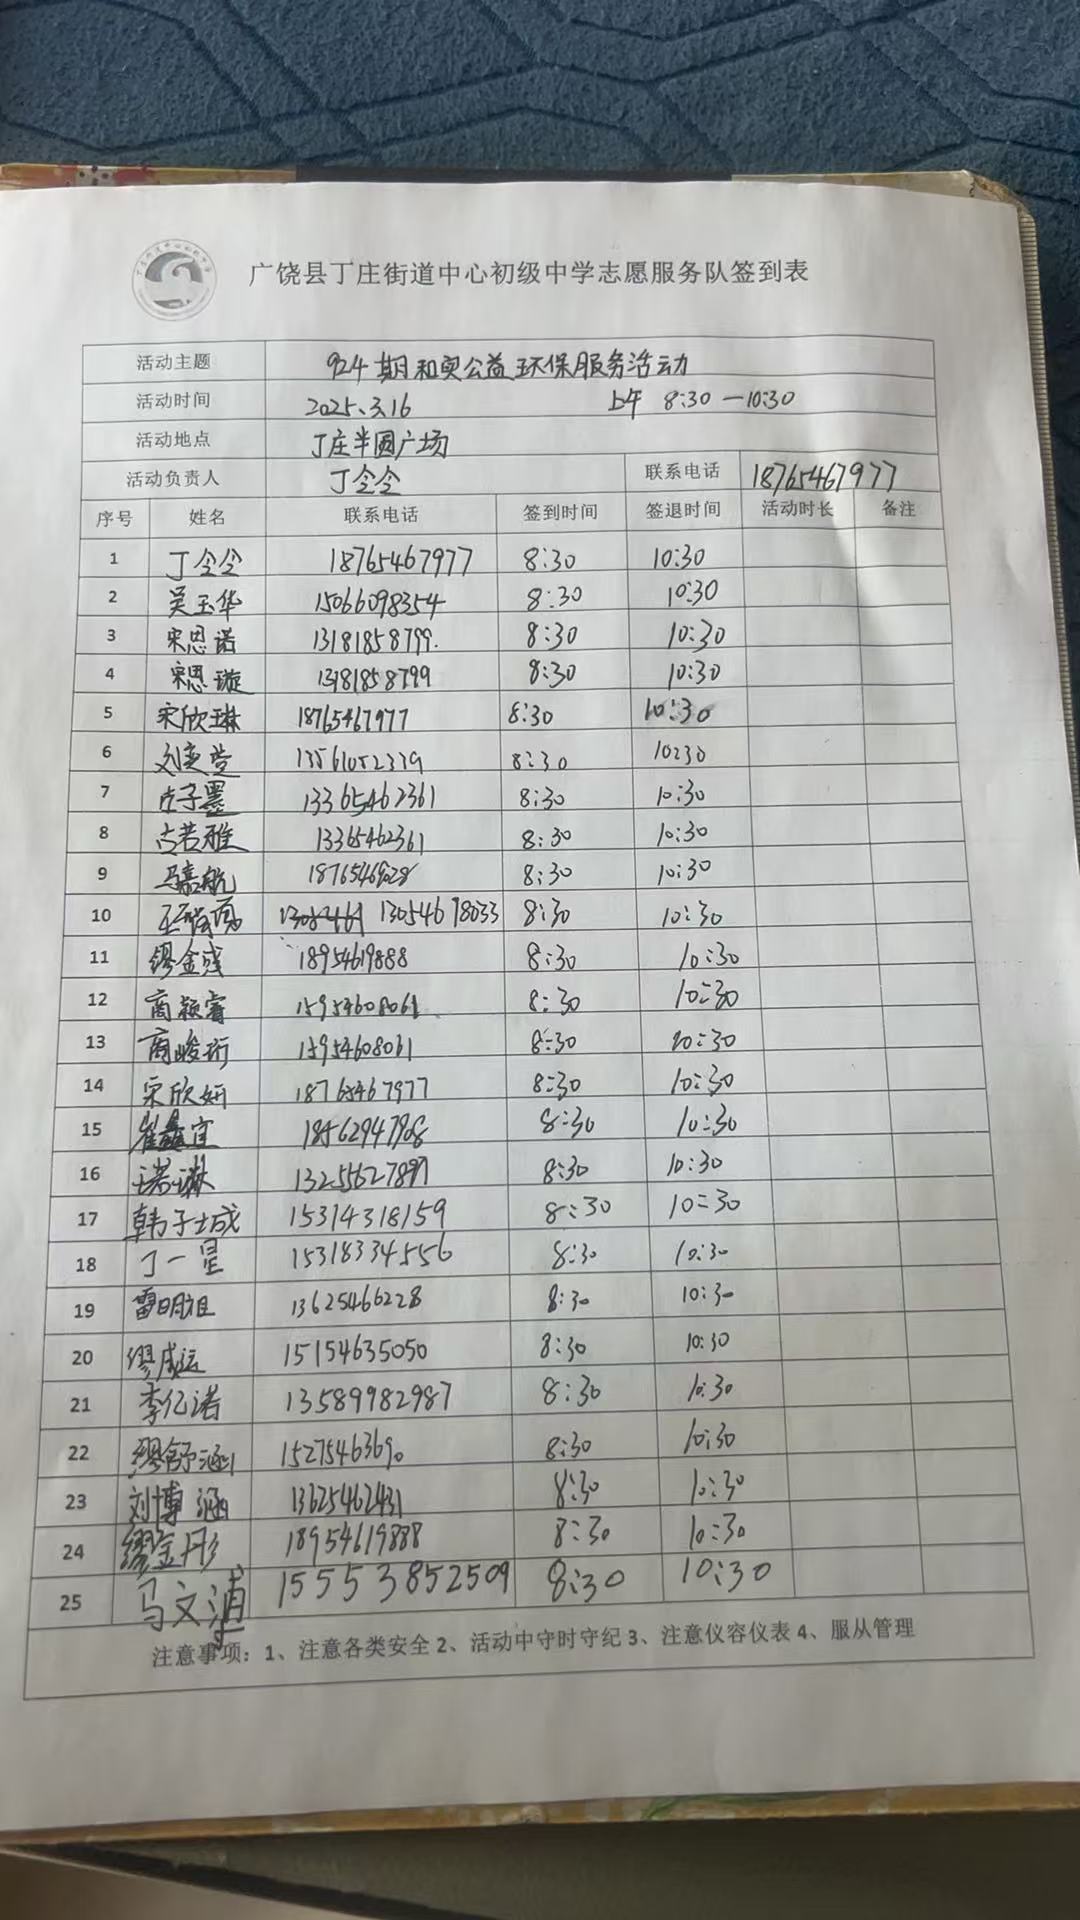 广饶县丁庄街道中心初级中学志愿服务队签到表
活动主题 924期和奥公益环保服务活动
活动时间 2025.3.16 上午 8:30—10:30
活动地点 丁庄半圆广场
活动负责人 丁令令 联系电话 18765467977
序号 姓名 联系电话 签到时间 签退时间 活动时长 备注
1 丁令令 18765467977 8:30 10:30
2 吴玉华 15066098354 8:30 10:30
3 宋恩诺 13181858799. 8:30 10:30
4 宋恩璇 13181858799 8:30 10:30
5 宋欣琳 18765467977 8:30 10:30
6 刘奕萱 13561052339 8:30 10:30
7 子墨 13365462361 8:30 10:30
8 古若雅 13365462361 8:30 10:30
9 马嘉航 8:30 10:30
10 13054678033 8:30 10:30
11 缪金彧 18954619888 8:30 10:30
12 商颖睿 15954608061 8:30 10:30
13 商峻珩 15954608061 8:30 10:30
14 宋欣妍 18765467977 8:30 10:30
15 崔鑫宜 18562947908 8:30 10:30
16 王诺琳 13255627897 8:30 10:30
17 韩子城 15314318159 8:30 10:30
18 丁一星 15318334556 8:30 10:30
19 雷明祖 13625466228 8:30 10:30
20 缪成运 15154635050 8:30 10:30
21 李亿诺 13589982987 8:30 10:30
22 缪舒涵 15275463690 8:30 10:30
23 刘博涵 13625462431 8:30 10:30
24 缪金彤 18954619888 8:30 10:30
25 马文浦 15553852509 8:30 10:30
注意事项：1、注意各类安全 2、活动中守时守纪 3、注意仪容仪表 4、服从管理